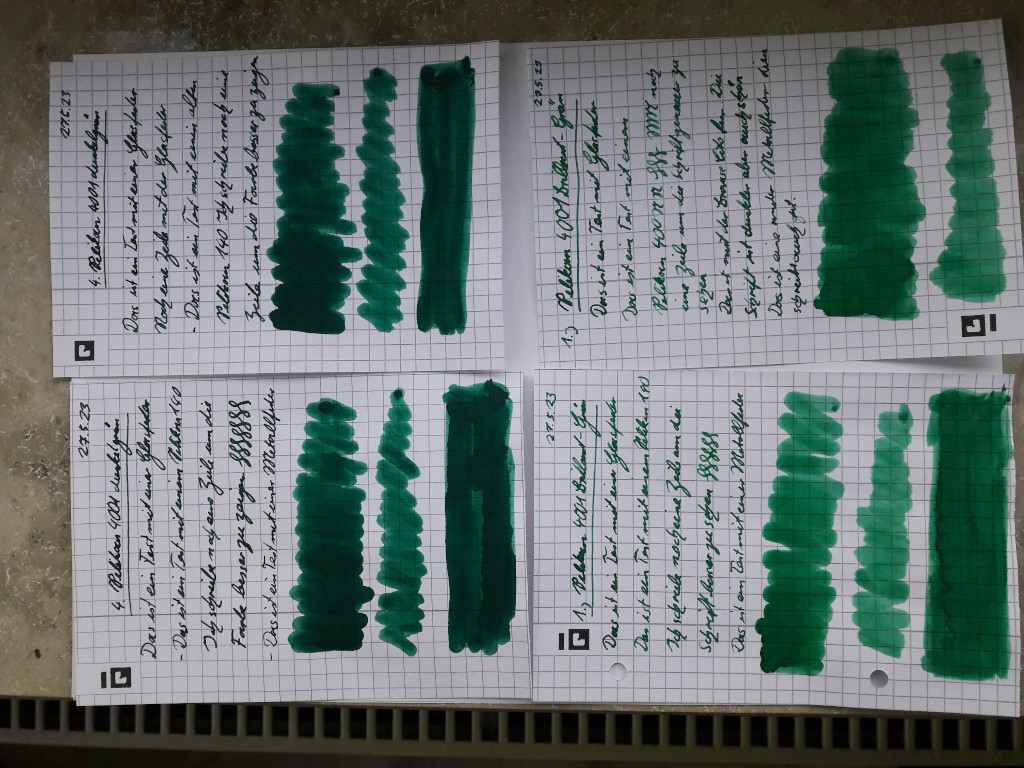 27.5.23
4. Pelikan 4001 dunkelgrün
Das ist ein Text mit einer Glasfeder
Noch eine Zeile mit der Glasfeder
- Das ist ein Text mit einem alten
Pelikan 140 Ich schreibe noch eine
Zeile um die Farbe besser zu zeigen
27.5.23
1.) Pelikan 4001 Brillant-Grün
Das ist ein Text mit Glasfeder
Das ist ein Text mit einem
Pelikan 400 noch
eine Zeile um die
Das ist eine andere Metallfeder
schreibt auch gut.
27.5.23
4. Pelikan 4001 dunkelgrün
Das ist ein Text mit einer Glasfeder
- Das ist ein Text mit einem Pelikan 140
Ich schreibe noch eine Zeile um die
Farbe besser zu zeigen
- Das ist ein Text mit einer Metallfeder
27.5.23
1.) Pelikan 4001 Brillant-Grün
Das ist ein Text mit einer Glasfeder
Das ist ein Text mit einem Pelikan 140
Ich schreibe noch eine Zeile um die
Schrift besser zu sehen
Das ist ein Text mit einer Metallfeder